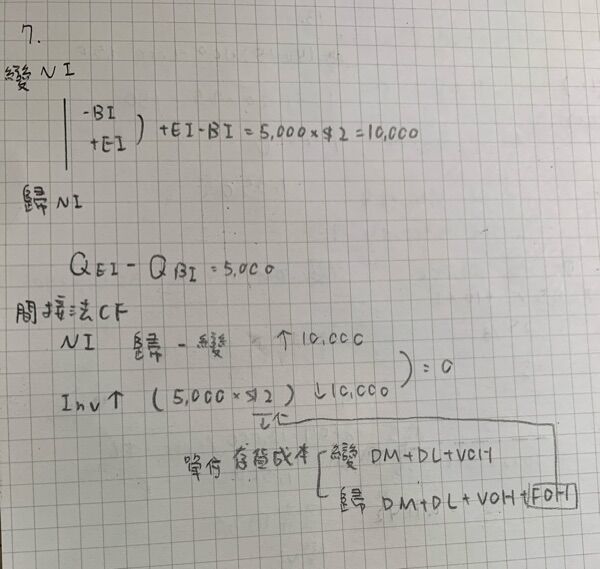 7.
變 NI
-BI
+EI ) +EI-BI = 5,000×$2 = 10,000
歸 NI
QEI - QBI = 5,000
間接法CF
NI 歸 - 變 ↑10,000
) = 0
Inv↑ (5,000×$2) ↓10,000
單位存貨成本 變 DM+DL+VOH
歸 DM+DL+VOH+FOH